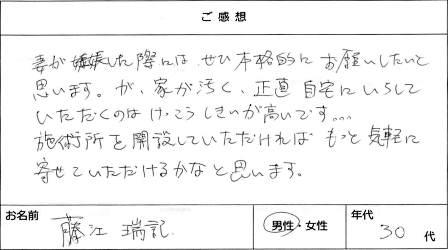 ご感想
妻が妊娠した際には、ぜひ本格的にお願いしたいと
思います。が、家が汚く、正直自宅にいらして
いただくのはけっこうしきいが高いです...。
施術所を開設していただければもっと気軽に
寄せていただけるかなと思います。
お名前 藤江 瑞記 男性・女性 年代 30代